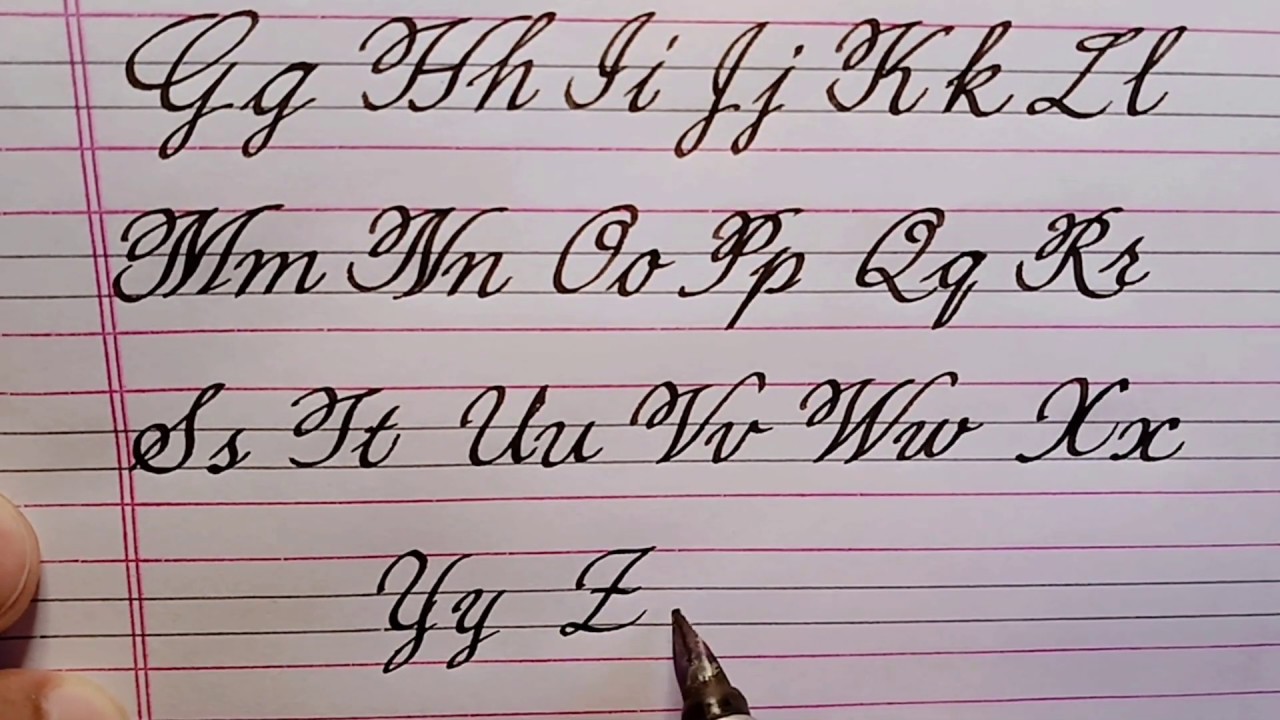 Gg Hh Ii Jj Kk Ll
Mm Nn Oo Pp Qq Rr
Ss Tt Uu Vv Ww Xx
Yy Z